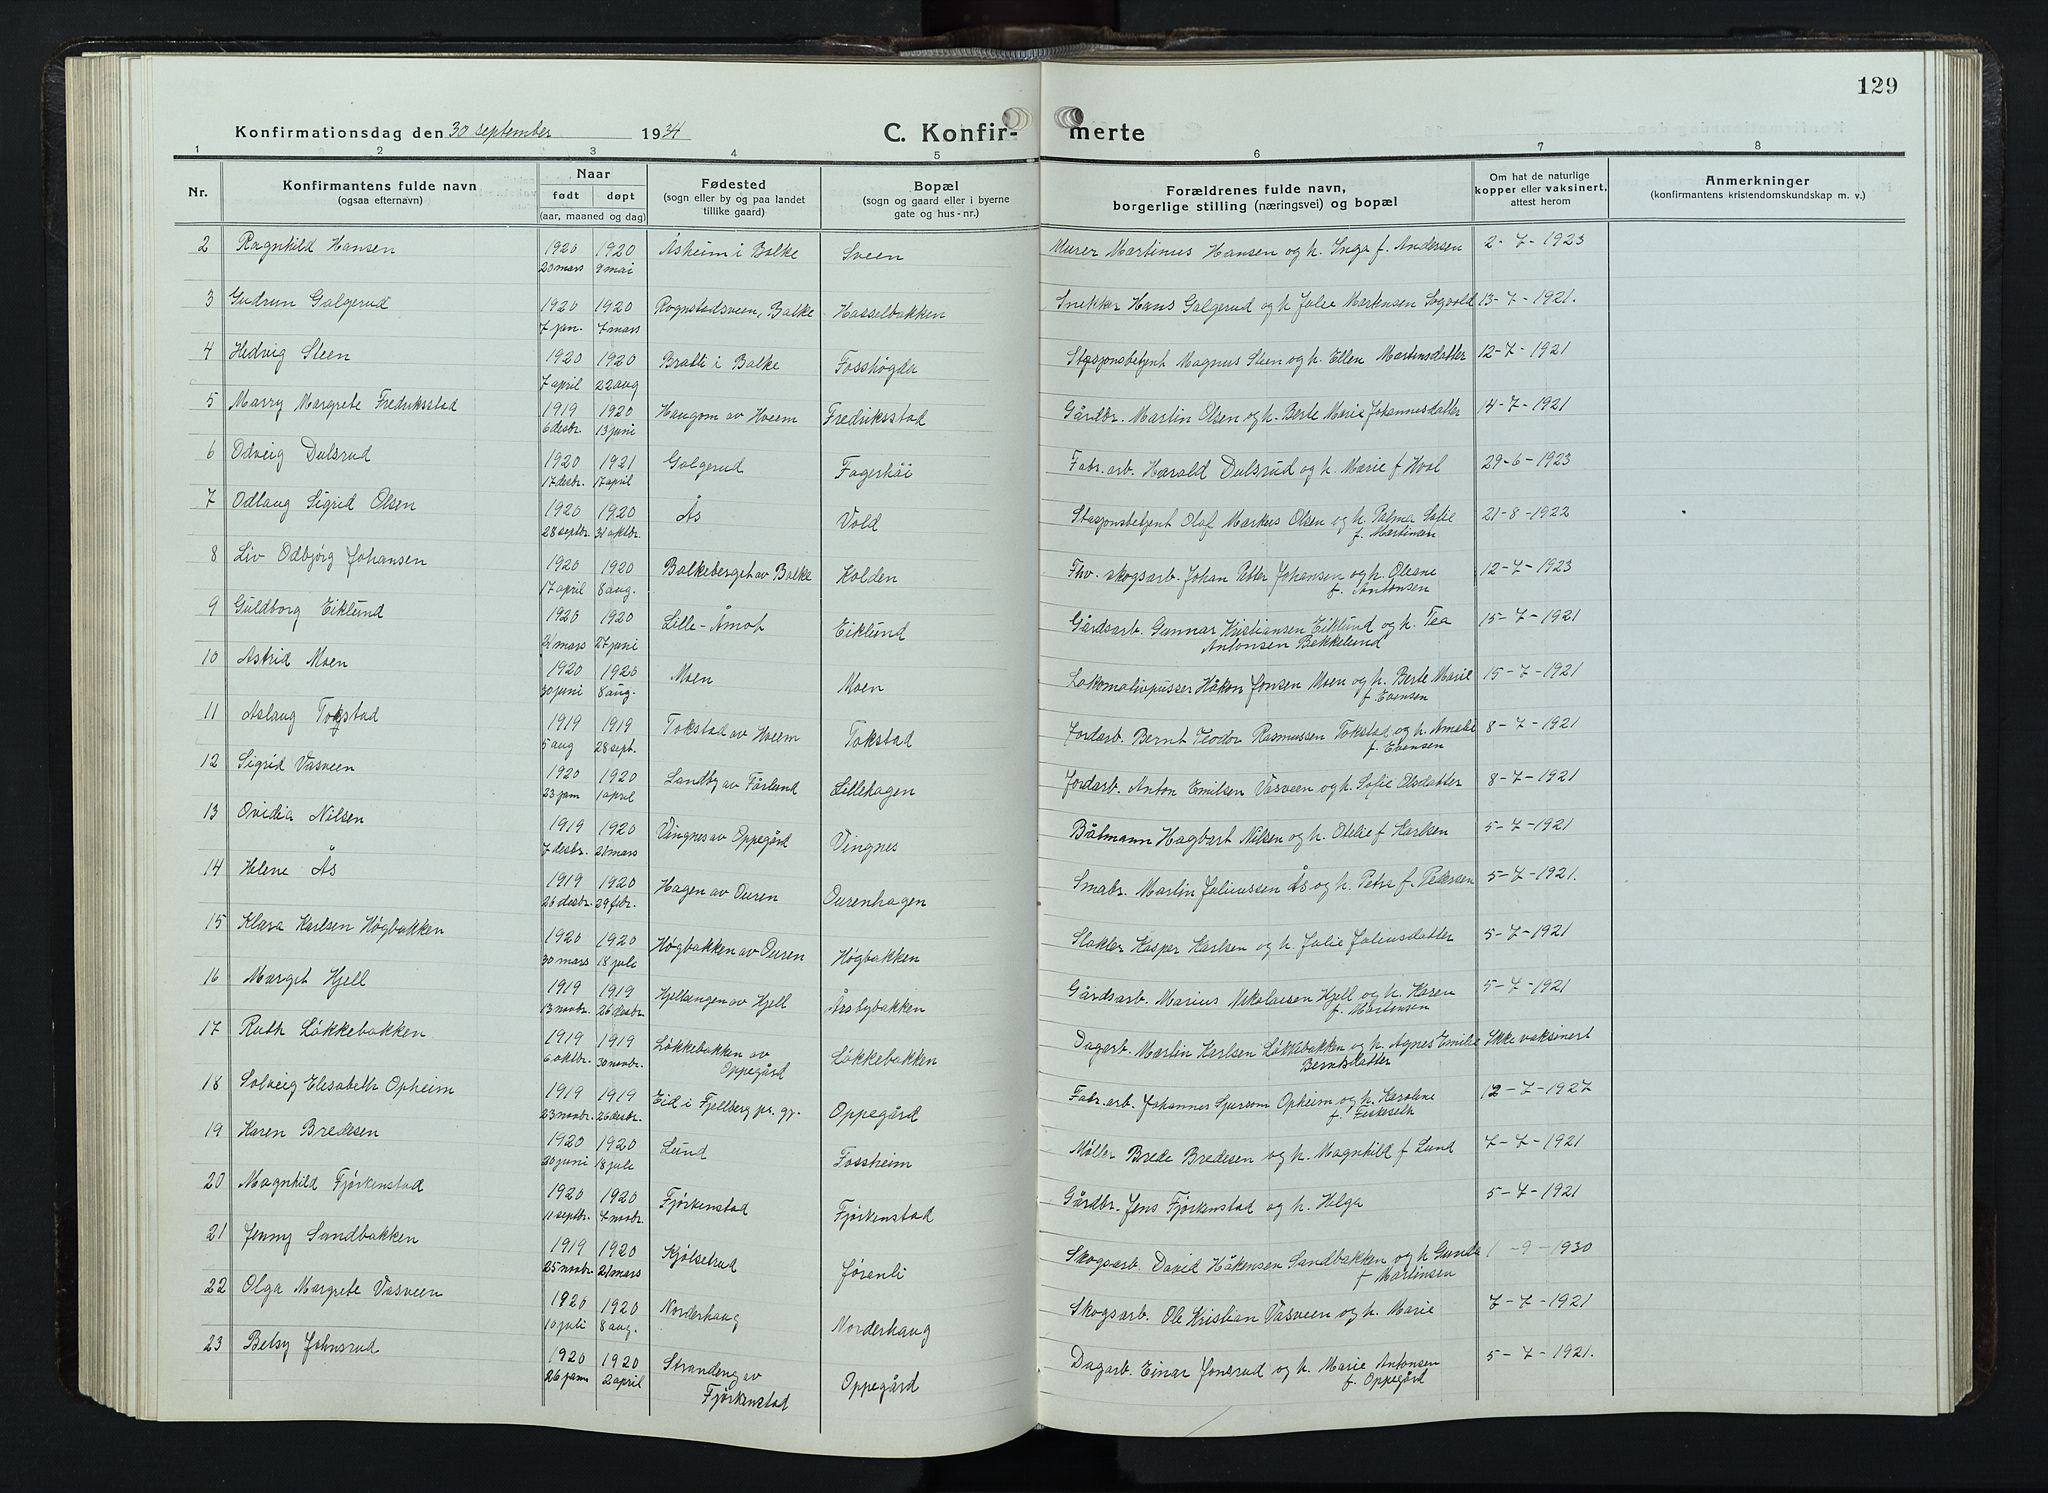 129
Konfirmationsdag den 30 september 1934 C. Konfir- merte
1 2 3 4 5 6 7 8
Nr. Konfirmantens fulde navn (ogsaa efternavn) Naar født døpt (aar, maaned og dag) Fødested (sogn eller by og paa landet tillike gaard) Bopæl (sogn og gaard eller i byerne gate og hus-nr.) Forældrenes fulde navn, borgerlige stilling (næringsvei) og bopæl Om hat de naturlige kopper eller vaksinert, attest herom Anmerkninger (konfirmantens kristendomskundskap m. v.)
2 Ragnhild Hansen 1920 20 mars 1920 9 mai Åsheim i Balke Sveen Murer Martinius Hansen og h. Inga f. Andersen 2-7-1923
3 Gudrun Galgerud 1920 7 jan. 1920 7 mars Rognstadsveen, Balke Hasselbakken Snekker Hans Galgerud og h. Julie Markusen Sogvold 13-7-1921.
4 Hedvig Steen 1920 7 april 1920 22 aug Bratli i Balke Fosshøgda Stasjonsbetjent Magnus Steen og h. Ellen Martinsdatter 12-7-1921
5 Marry Margrete Fredriksstad 1919 6 desbr. 1920 13 juni Haugom av Hveem Fredriksstad Gårdbr. Martin Olsen og h. Berte Marie Johannesdatter 14-7-1921
6 Odveig Dulsrud 1920 17 desbr. 1921 17 april Galgerud Fagerhåi Fabr. arb. Harald Dulsrud og h. Marie f Hval 29-6-1923
7 Odlaug Sigrid Olsen 1920 28 septbr. 1920 31 oktbr. Ås Vold Stasjonsbetjent Olaf Markus Olsen og h. Palma Sofie f. Martinsen 21-8-1922
8 Liv Odbjørg Johansen 1920 17 april 1920 8 aug. Balkeberget av Balke Kolden Fhv. skogsarb. Johan Petter Johansen og h. Oleane f. Antonsen 12-7-1923
9 Guldborg Eiklund 1920 21 mars 1920 27 juni Lille-Åmot Eiklund Gårdsarb. Gunnar Kristiansen Eiklund og h. Tea Antonsen Bekkelund 15-7-1921
10 Astrid Moen 1920 30 juni 1920 8 aug. Moen Moen Lokomativpusser Håkon Jonsen Moen og h. Berte Marie f. Evensen 15-7-1921
11 Aslaug Tokstad 1919 5 aug 1919 28 sept. Tokstad av Hveem Tokstad Jordarb. Bernt Teodor Rasmussen Tokstad og h. Amalie f. Evensen 8-7-1921
12 Sigrid Vasveen 1920 23 jan 1920 1 april Landby av Fårlund Lillehagen Jordarb. Anton Emilsen Vasveen og h. Sofie Olsdatter 8-7-1921
13 Ovidia Nilsen 1919 7 desbr. 1920 21 mars Vingnes av Oppegård Vingnes Båtmann Hagbart Nilsen og h. Otelie f Karlsen 5-7-1921
14 Helene Ås 1919 26 desbr. 1920 29 febr. Hagen av Ouren Ourenhagen Småbr. Martin Juliussen Ås og h. Petra f. Pedersen 5-7-1921.
15 Klara Karlsen Høgbakken 1920 30 mars 1920 18 jule Høgbakken av Ouren Høgbakken Slakter Kasper Karlsen og h. Julie Juliusdatter 5-7-1921
16 Marget Hjell 1919 13 novbr. 1919 26 desbr Hjellengen av Hjell Årsbybakken Gårdsarb. Marius Nikolaisen Hjell og h. Karen f. Martinsen 5-7-1921
17 Ruth Løkkebakken 1919 6 oktbr. 1919 30 novbr. Løkkebakken av Oppegård Løkkebakken Dagarb. Martin Karlsen Løkkebakken og h. Agnes Emilie Berntsdatter Ikke vaksinert
18 Solveig Elisabeth Opheim 1919 23 novbr. 1919 26 desbr. Eid i Fjellberg pr. gj. Oppegård Fabr. arb. Johannes Opheim og h. Karoline 12-7-1927
19 Karen Bredesen 1920 20 juni 1920 18 jule Lund Fossheim Møller Brede Bredesen og h. Magnhild f Lund 7-7-1921
20 Magnhild Fjørkenstad 1920 11 septbr. 1920 7 novbr. Fjørkenstad Fjørkenstad Gårdbr. Jens Fjørkenstad og h. Helga 5-7-1921
21 Jenny Sandbakken 1919 25 novbr. 1920 21 mars Kjølsetrud Jørenli Skogsarb. David Håkensen Sandbakken og h Gunda f Martinsen 1-9-1930
22 Olga Margrete Vasveen 1920 10 juli 1920 8 aug. Norderhaug Norderhaug Skogsarb. Ole Kristian Vasveen og h. Marie 7-7-1921
23 Betsy Johnsrud 1920 26 jan 1920 2 april Strandeng av Fjørkenstad Oppegård Dagarb. Einar Jonsrud og h. Marie Antonsen f. Oppegård 5-7-1921.